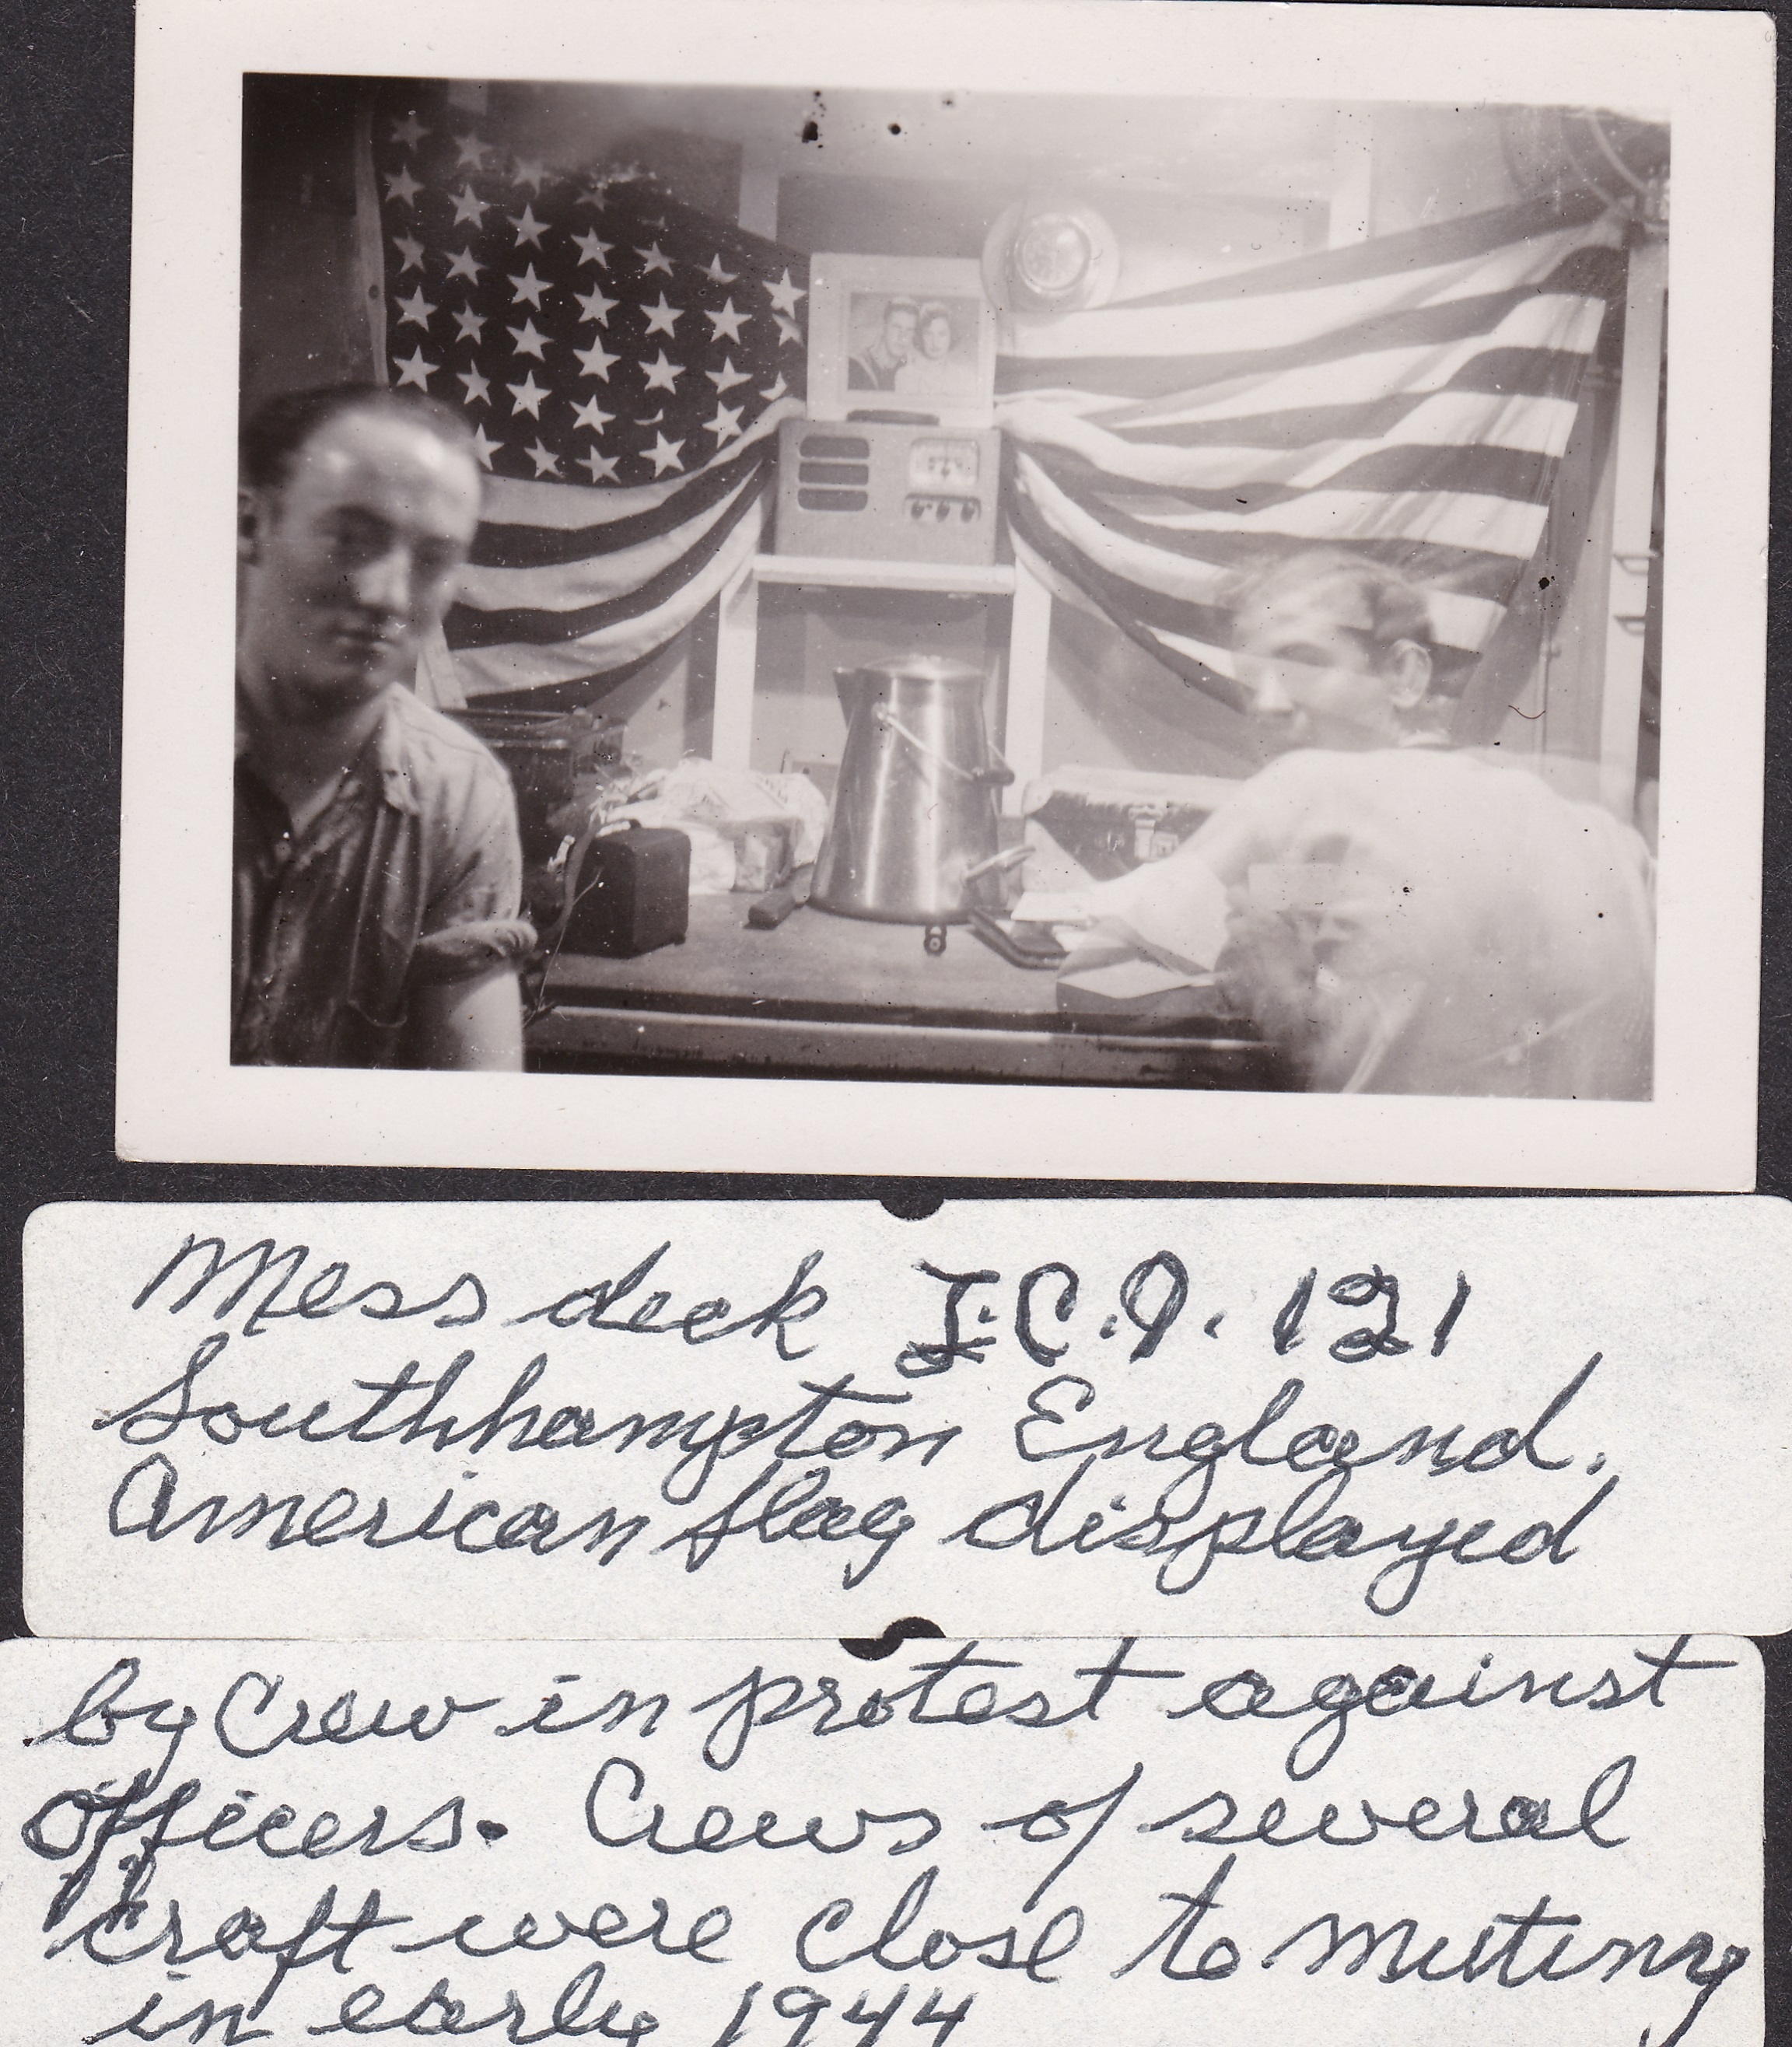 Mess deck L.C.I. 121
Southhampton England.
American flag displayed
by Crew in protest against
officers. Crews of several
craft were close to mutiny
in early 1944